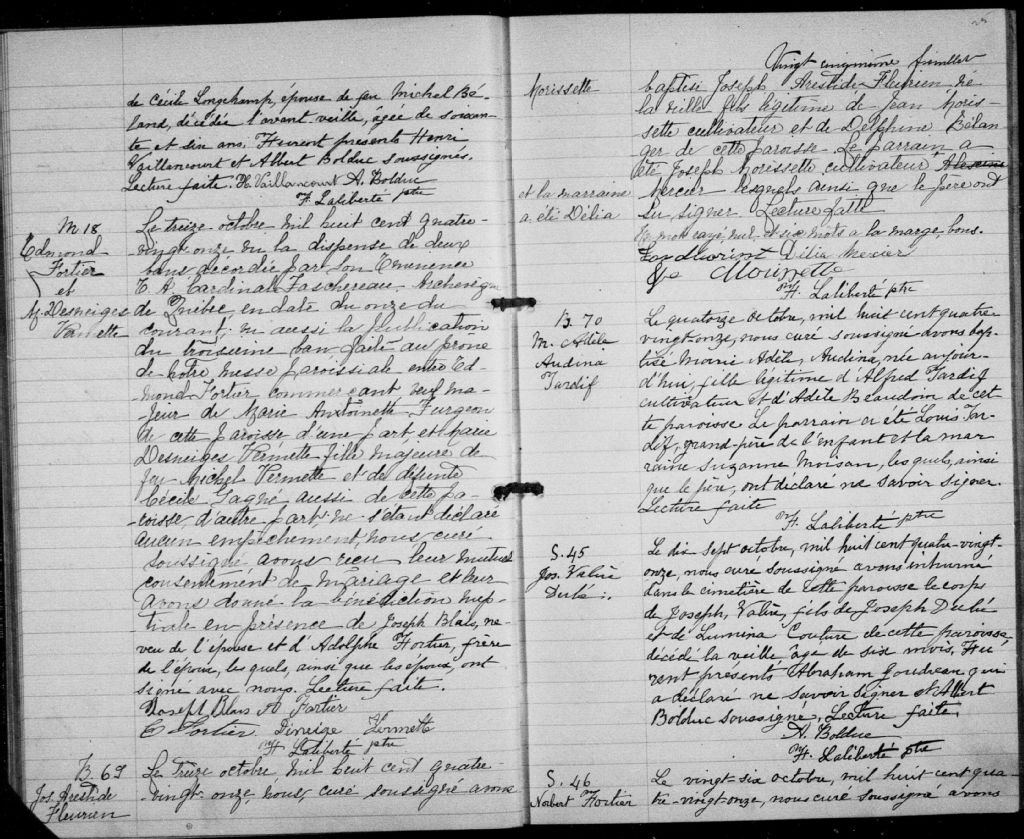 de Cécile Longchamp, épouse de feu Michel Bé-
land, décédée l'avant veille, âgée de soixan-
te et six ans. Furent présents Henri
Vaillancourt et Albert Bolduc soussignés.
Lecture faite. H. Vaillancourt A. Bolduc
F. Laliberté ptre
M 18
Edmond
Fortier
et
M. Desneiges
Vermette
Le treize octobre mil huit cent quatre-
vingt onze, vu la dispense de deux
bans accordée par Son Eminence
E. A. Cardinal Taschereau, Archevêque
de Québec, en date du onze du
courant; vu aussi la publication
du troisième ban faite au prône
de notre messe paroissiale entre Ed-
mond Fortier commerçant veuf ma-
jeur de Marie Antoinette Turgeon
de cette paroisse d'une part et Marie
Desneiges Vermette fille majeure de
feu Michel Vermette et de défunte
Cécile Gagné aussi de cette pa-
roisse, d'autre part; ne s'étant déclaré
aucun empêchement, nous curé
soussigné avons reçu leur mutuel
consentement de mariage et leur
avons donné la bénédiction nup-
tiale en présence de Joseph Blais, ne-
veu de l'épouse et d'Adolphe Fortier, frère
de l'époux, les quels, ainsi que les époux, ont
signé avec nous. Lecture faite.
Joseph Blais A Fortier
E Fortier Dineige Vermette
F. Laliberté ptre
B 69
Jos. Arestide
Fleurien
Le treize octobre, mil huit cent quatre-
vingt-onze, nous, curé soussigné avons
Vingt cinquième feuillet
Morissette
baptisé Joseph Arestide Fleurien né
la veille fils légitime de Jean Moris-
sette cultivateur et de Delphine Bélan-
ger de cette paroisse. Le parrain a
été Joseph Morissette cultivateur,
et la marraine
a été Délia
Mercier lesquels ainsi que le père ont
su signer Lecture faite
mot rayé nul, et six mots à la marge, bons.
Délia Mercier
F. Laliberté ptre
B. 70
M. Adéla
Audina
Tardif
Le quatorze octobre, mil huit cent quatre-
vingt-onze, nous curé soussigné avons bap-
tisé Marie Adèle, Audina, née aujour-
d'hui, fille légitime d'Alfred Tardif
cultivateur et d'Adèle Beaudoin de cet-
te paroisse. Le parrain a été Louis Tar-
dif, grand-père de l'enfant et la mar
raine Suzanne Moisan, les quels, ainsi
que le père, ont déclaré ne savoir signer.
Lecture faite
F. Laliberté ptre
S. 45
Jos. Valère
Dubé
Le dix sept octobre, mil huit cent quatre-vingt-
onze, nous curé soussigné avons inhumé
dans le cimetière de cette paroisse le corps
de Joseph, Valère, fils de Joseph Dubé
et de Lumina Couture de cette paroisse
décédé la veille âgé de six mois, Fu-
rent présents Abraham Goudreau qui
a déclaré ne savoir signer et Albert
Bolduc soussigné. Lecture faite.
A. Bolduc
F. Laliberté ptre
S. 46
Norbert Fortier
Le vingt-six octobre, mil huit cent qua-
tre-vingt-onze, nous curé soussigné avons